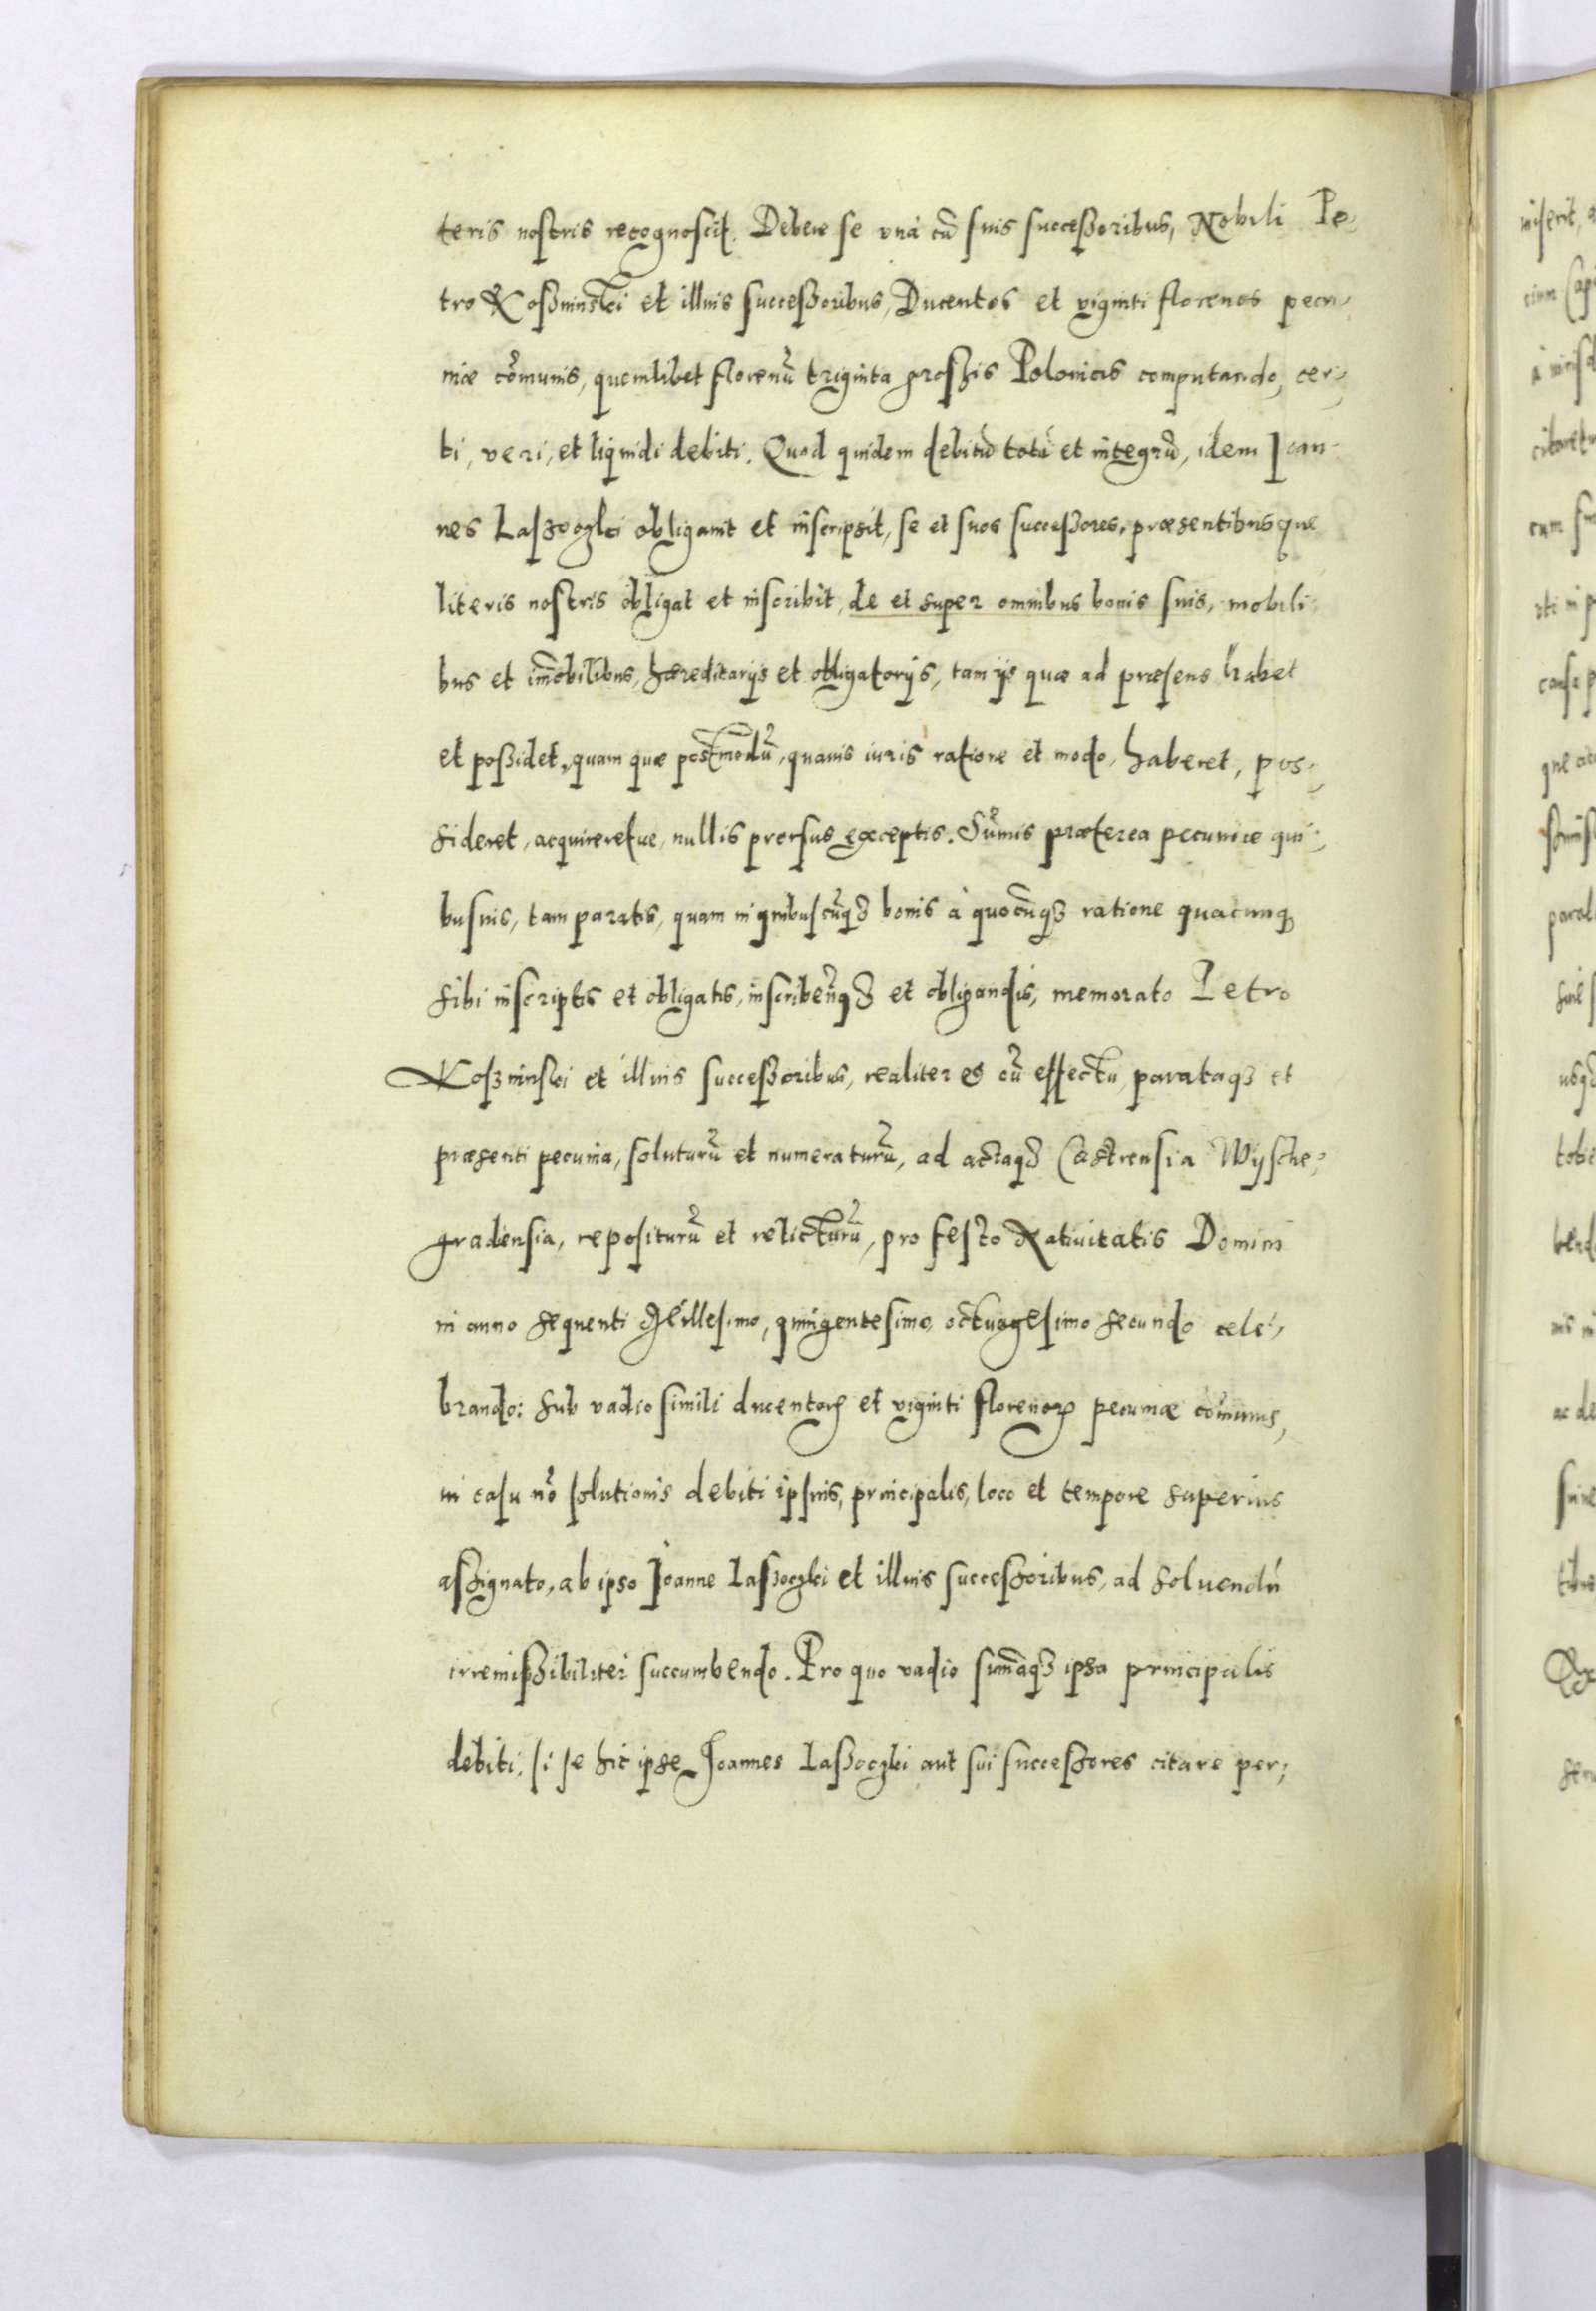 teris nostris recognoscit. Debere se unà cũ suis successoribus, Nobili Pe,
tro Koßminskí et illius successoribus, Ducentos et viginti florenos pecu,
niæ cõmunis, quemlibet florenũ triginta grossis Polonicis computando, cer,
ti, veri, et liquidi debiti. Quod quidem debitũ totũ et integrũ, idem Ioan
nes Laßoczki obligauit et inscripsit, se et suos successores, præsentibusque
literis nostris obligat et inscribit, de et super omnibus bonis suis, mobili,
bus et im̃obilibus, hæreditarijs et obligatorijs, tam ijs quæ ad præsens habet
et possidet, quam quæ postmodũ, quauis iuris ratione et modo, haberet, pos,
sideret, acquireretue, nullis prorsus exceptis. Sũmis præterea pecuniæ qui,
busuis, tam paratis, quam in quibuscũq3 bonis à quocũq3 ratione quacunq3
sibi inscriptis et obligatis, inscribeñq3 et obligandis, memorato Petro
Koßminski et illius successoribus, realiter et cũ effectu, parataq3 et
præsenti pecunia, soluturũ et numeraturũ, ad actaq3 Castrensia Wysche,
gradensia, repositurũ et relicturũ, pro festo Natiuitatis Domini
in anno sequenti Millesimo, quingentesimo, octuagesimo secundo cele,
brando: sub vadio simili ducentorꝝ et viginti florenorꝝ pecuniæ cõmunis,
in casu nõ solutionis debiti ipsius, principalis, loco et tempore superius
assignato, ab ipso Ioanne Laßoczki et illius successoribus, ad soluendũ
irremissibiliter succumbendo. Pro quo vadio sum̃aq3 ipsa principalis
debiti, si se hic ipse Joannes Laßoczki aut sui successores citare per;